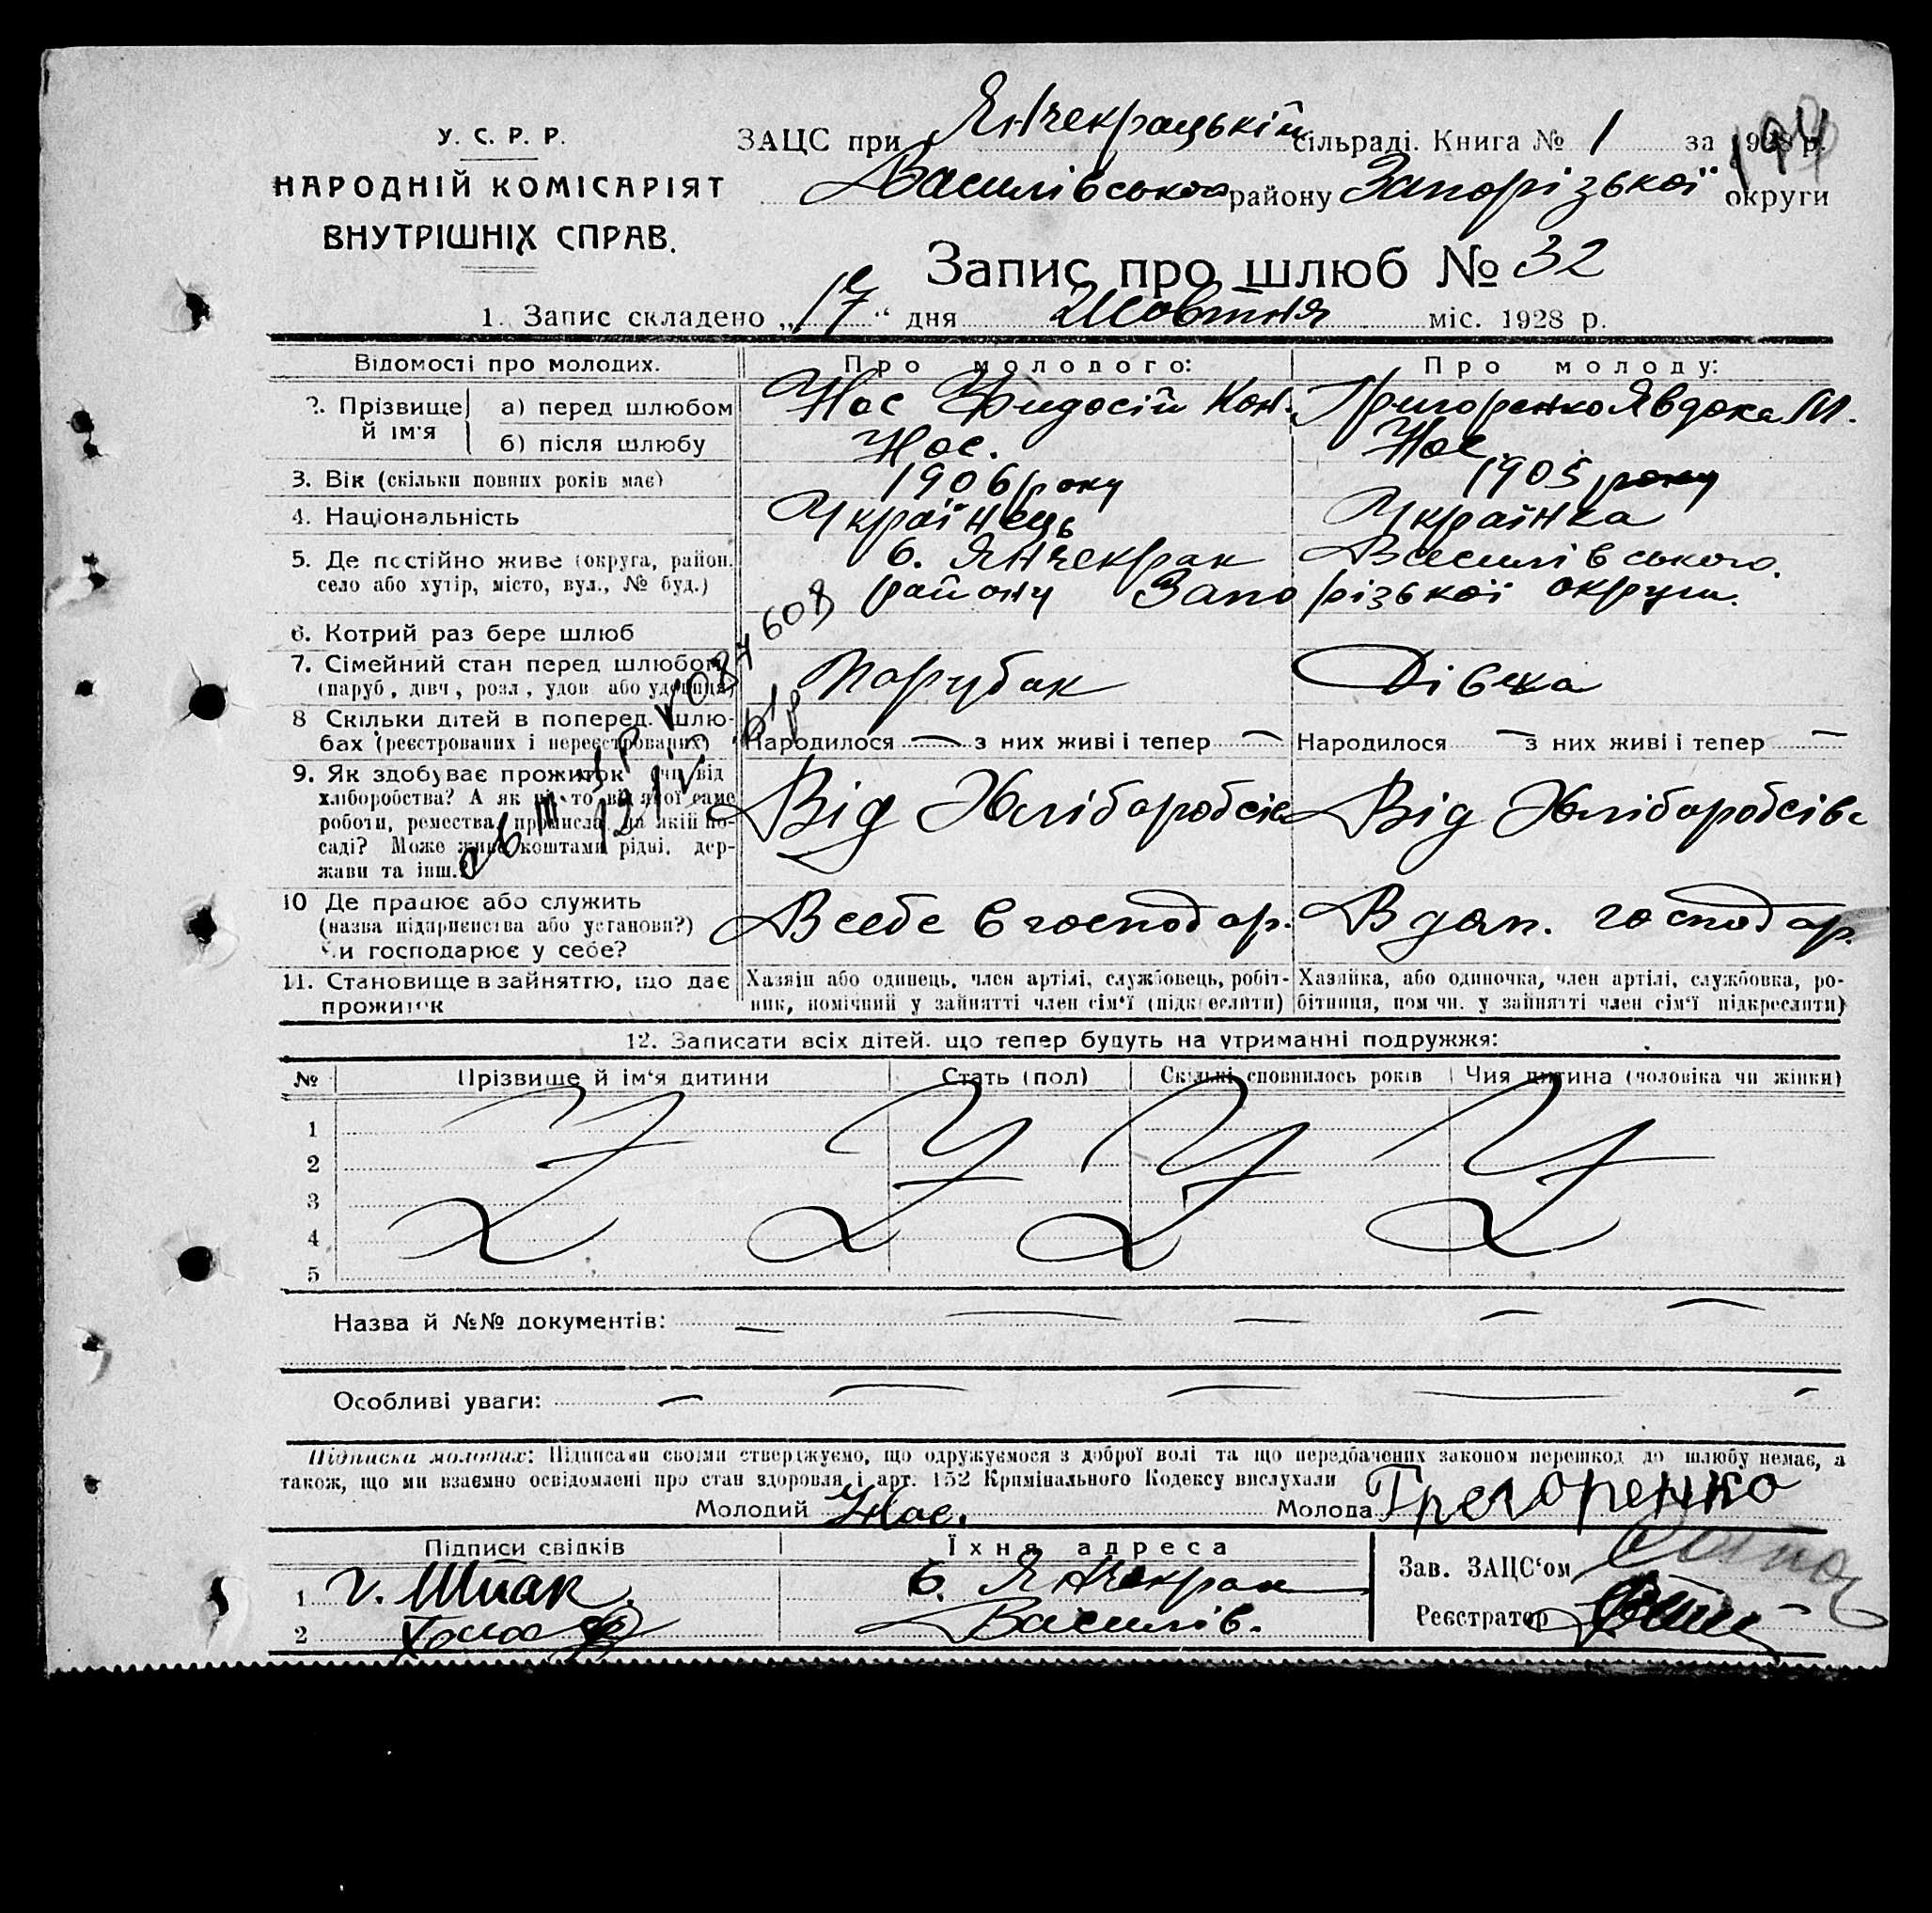 У. С. Р. Р.
НАРОДНІЙ КОМІСАРІЯТ
ВНУТРІШНІХ СПРАВ.
ЗАЦС при Янчекрацькій сільраді. Книга № 1 за 1928 р.
194
Василівського району Запорізької округи
Запис про шлюб № 32
1. Запис складено „17“ дня Жовтня міс. 1928 р.
Відомості про молодих. Про молодого: Про молоду:
2. Прізвище й ім'я а) перед шлюбом Нос Фидосій Кон. Григоренко Явдока М.
б) після шлюбу Нос. Нос
3. Вік (скільки повних років має) 1906 року 1905 року
4. Національність Українець Українка
5. Де постійно живе (округа, район, с. Янчекрак Василівського
село або хутір, місто, вул., № буд.) району Запорізької округи.
6. Котрий раз бере шлюб
7. Сімейний стан перед шлюбом Парубак Дівка
(паруб, дівч, розл, удов або удовиця)
8 Скільки дітей в поперед. шлю-
бах (реєстрованих і нереєстрованих) Народилося — з них живі і тепер — Народилося — з них живі і тепер —
9. Як здобуває прожиток (чи від
хліборобства? А як ні то від якої саме Від Хліборобсів Від Хліборобсів
роботи, ремества, промисла, на якій по-
саді? Може живе коштами рідні, дер-
жави та інш.
608
10 Де працює або служить
(назва підприємства або установи?) В себе в господар. В дом. господар.
Чи господарює у себе?
11. Становище в зайняттю, що дає Хазяїн або одинець, член артілі, службовець, робіт- Хазяйка, або одиночка, член артілі, службовка, ро-
прожиток ник, помічний у зайнятті член сім'ї (підкреслити) бітниця, пом чн. у зайнятті член сім'ї підкреслити)
12. Записати всіх дітей. що тепер будуть на утриманні подружжя:
№ Прізвище й ім'я дитини Стать (пол) Скільки сповнилось років Чия дитина (чоловіка чи жінки)
1
2
3
4
5
Назва й №№ документів: — — — — —
Особливі уваги: — — — — —
Підписка молодих: Підписами своїми стверджуємо, що одружуємося з доброї волі та що передбачених законом перешкод до шлюбу немає, а
також, що ми взаємно освідомлені про стан здоровля і арт. 152 Кримінального Кодексу вислухали
Молодий Нос. Молода Грегоренко
Підписи свідків Їхня адреса
Зав. ЗАЦС'ом
1 г. Шпак. с. Янчекрак
Реєстратор
2 Василів.